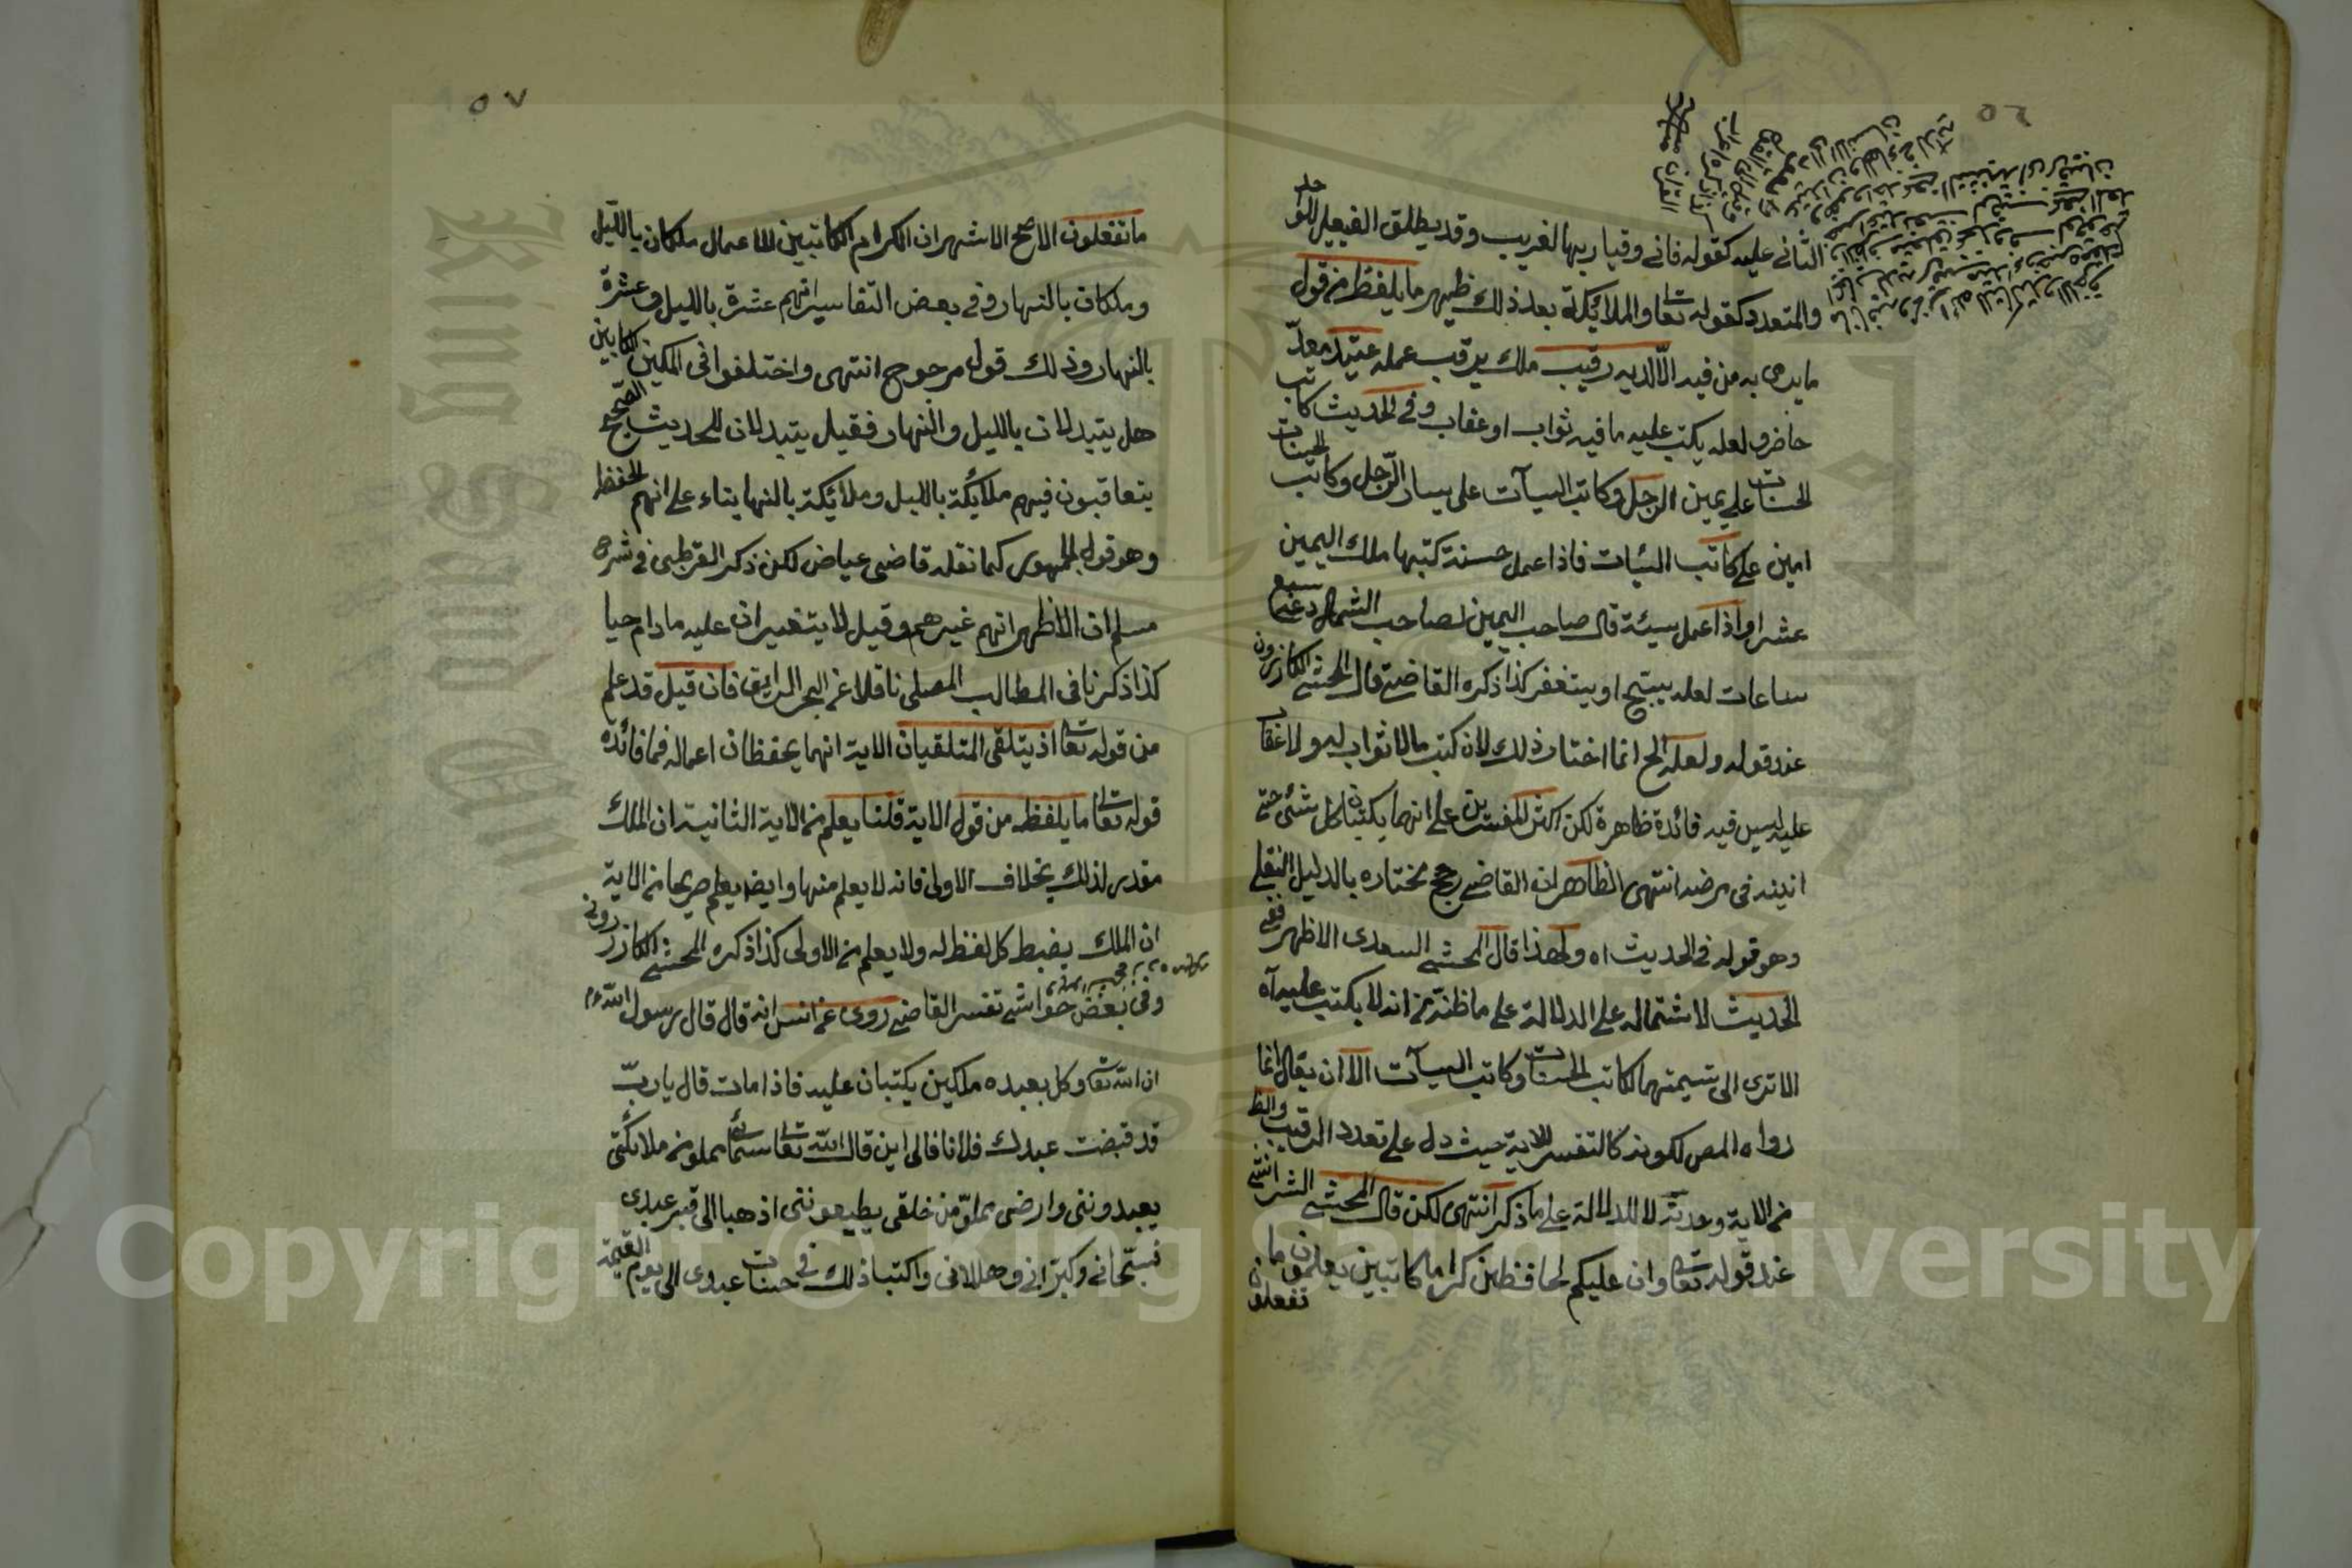 الثاني عليه كقوله فاني وقيار بها لغريب وقد يطلق الفعيل للواحد
والمتعدد كقوله تعا والملائكة بعد ذلك ظهير ما يلفظ من قول
ما يرمى به من فيه الا لديه رقيب ملك يرقب عمله عتيد معد
حاضر ولعله يكتب عليه ما فيه ثواب او عقاب وفي الحديث كاتب
الحسنات على يمين الرجل وكاتب السيآت على يسار الرجل وكاتب الحسنات
امين على كاتب السيئات فاذا عمل حسنة كتبها ملك اليمين
عشرا واذا عمل سيئة قال صاحب اليمين لصاحب الشمال دعه سبع
ساعات لعله يسبح او يستغفر كذا ذكره القاضي قال المحشي الكازروني
عند قوله ولعله الخ انما اختار ذلك لان كتب ما لا ثواب له ولا عقاب
عليه ليس فيه فائدة ظاهرة لكن اكثر المفسرين على انهما يكتبان كل شئ حتى
انينه في مرضه انتهى الظاهر ان القاضي رجح مختاره بالدليل النقلي
وهو قوله في الحديث اه ولهذا قال المحشي السعدى الاظهر ففي
الحديث لاشتماله على الدلالة على ما ظنه من انه لا يكتب عليه آه
الا ترى الى تسميتهما كاتب الحسنات وكاتب السيآت الا ان يقال انما
رواه المص لكونه كالتفسير للاية حيث دل على تعدد الرقيب والظ
من الاية وحدته لا للدلالة على ما ذكر انتهى لكن قال المحشي الشر انشى
عند قوله تعا وان عليكم لحافظين كراما كاتبين يعلمون ما
تفعلون
٥٧
ما تفعلون الاصح الاشهر ان الكرام الكاتبين للاعمال ملكان بالليل
وملكان بالنهار وفي بعض التفاسير انهم عشرة بالليل وعشرة
بالنهار وذلك قول مرجوح انتهى واختلفوا في الملكين الكاتبين
هل يتبدلان بالليل والنهار فقيل يتبدلان للحديث الصحيح
يتعاقبون فيهم ملائكة بالليل وملائكة بالنها بناء على انهم الحفظ
وهو قول الجمهور كما نقله قاضي عياض لكن ذكر القرطبي في شرح
مسلم ان الاظهر انهم غيرهم وقيل لا يتغيران عليه ما دام حيا
كذا ذكرنا في المطالب المصلي ناقلا عن البحر الرايق فان قيل قد علم
من قوله تعا اذ يتلقى المتلقيان الاية انهما يحفظان اعماله فما فائدة
قوله تعا ما يلفظ من قول الاية قلنا يعلم من الاية الثانية ان الملك
مقدر لذلك بخلاف الاولى فانه لا يعلم منها وايضا يعلم صريحا من الاية
ان الملك يضبط كل لفظ له ولا يعلم من الاولى كذا ذكره المحشي الكازروني
وفي بعض حواشي تفسير القاضي روى عن انس انه قال قال رسول الله ءم
ان الله تعا وكل بعبده ملكين يكتبان عليه فاذا مات قال يا رب
قد قبضت عبدك فلانا فالى اين قال الله تعا سمائى مملو من ملائكتى
يعبدوننى وارضى مملو من خلقى يطيعوننى اذهبا الى قبر عبدى
فسبحاني وكبراني وهللانى واكتبا ذلك في حسنات عبدى الى يوم القيمة